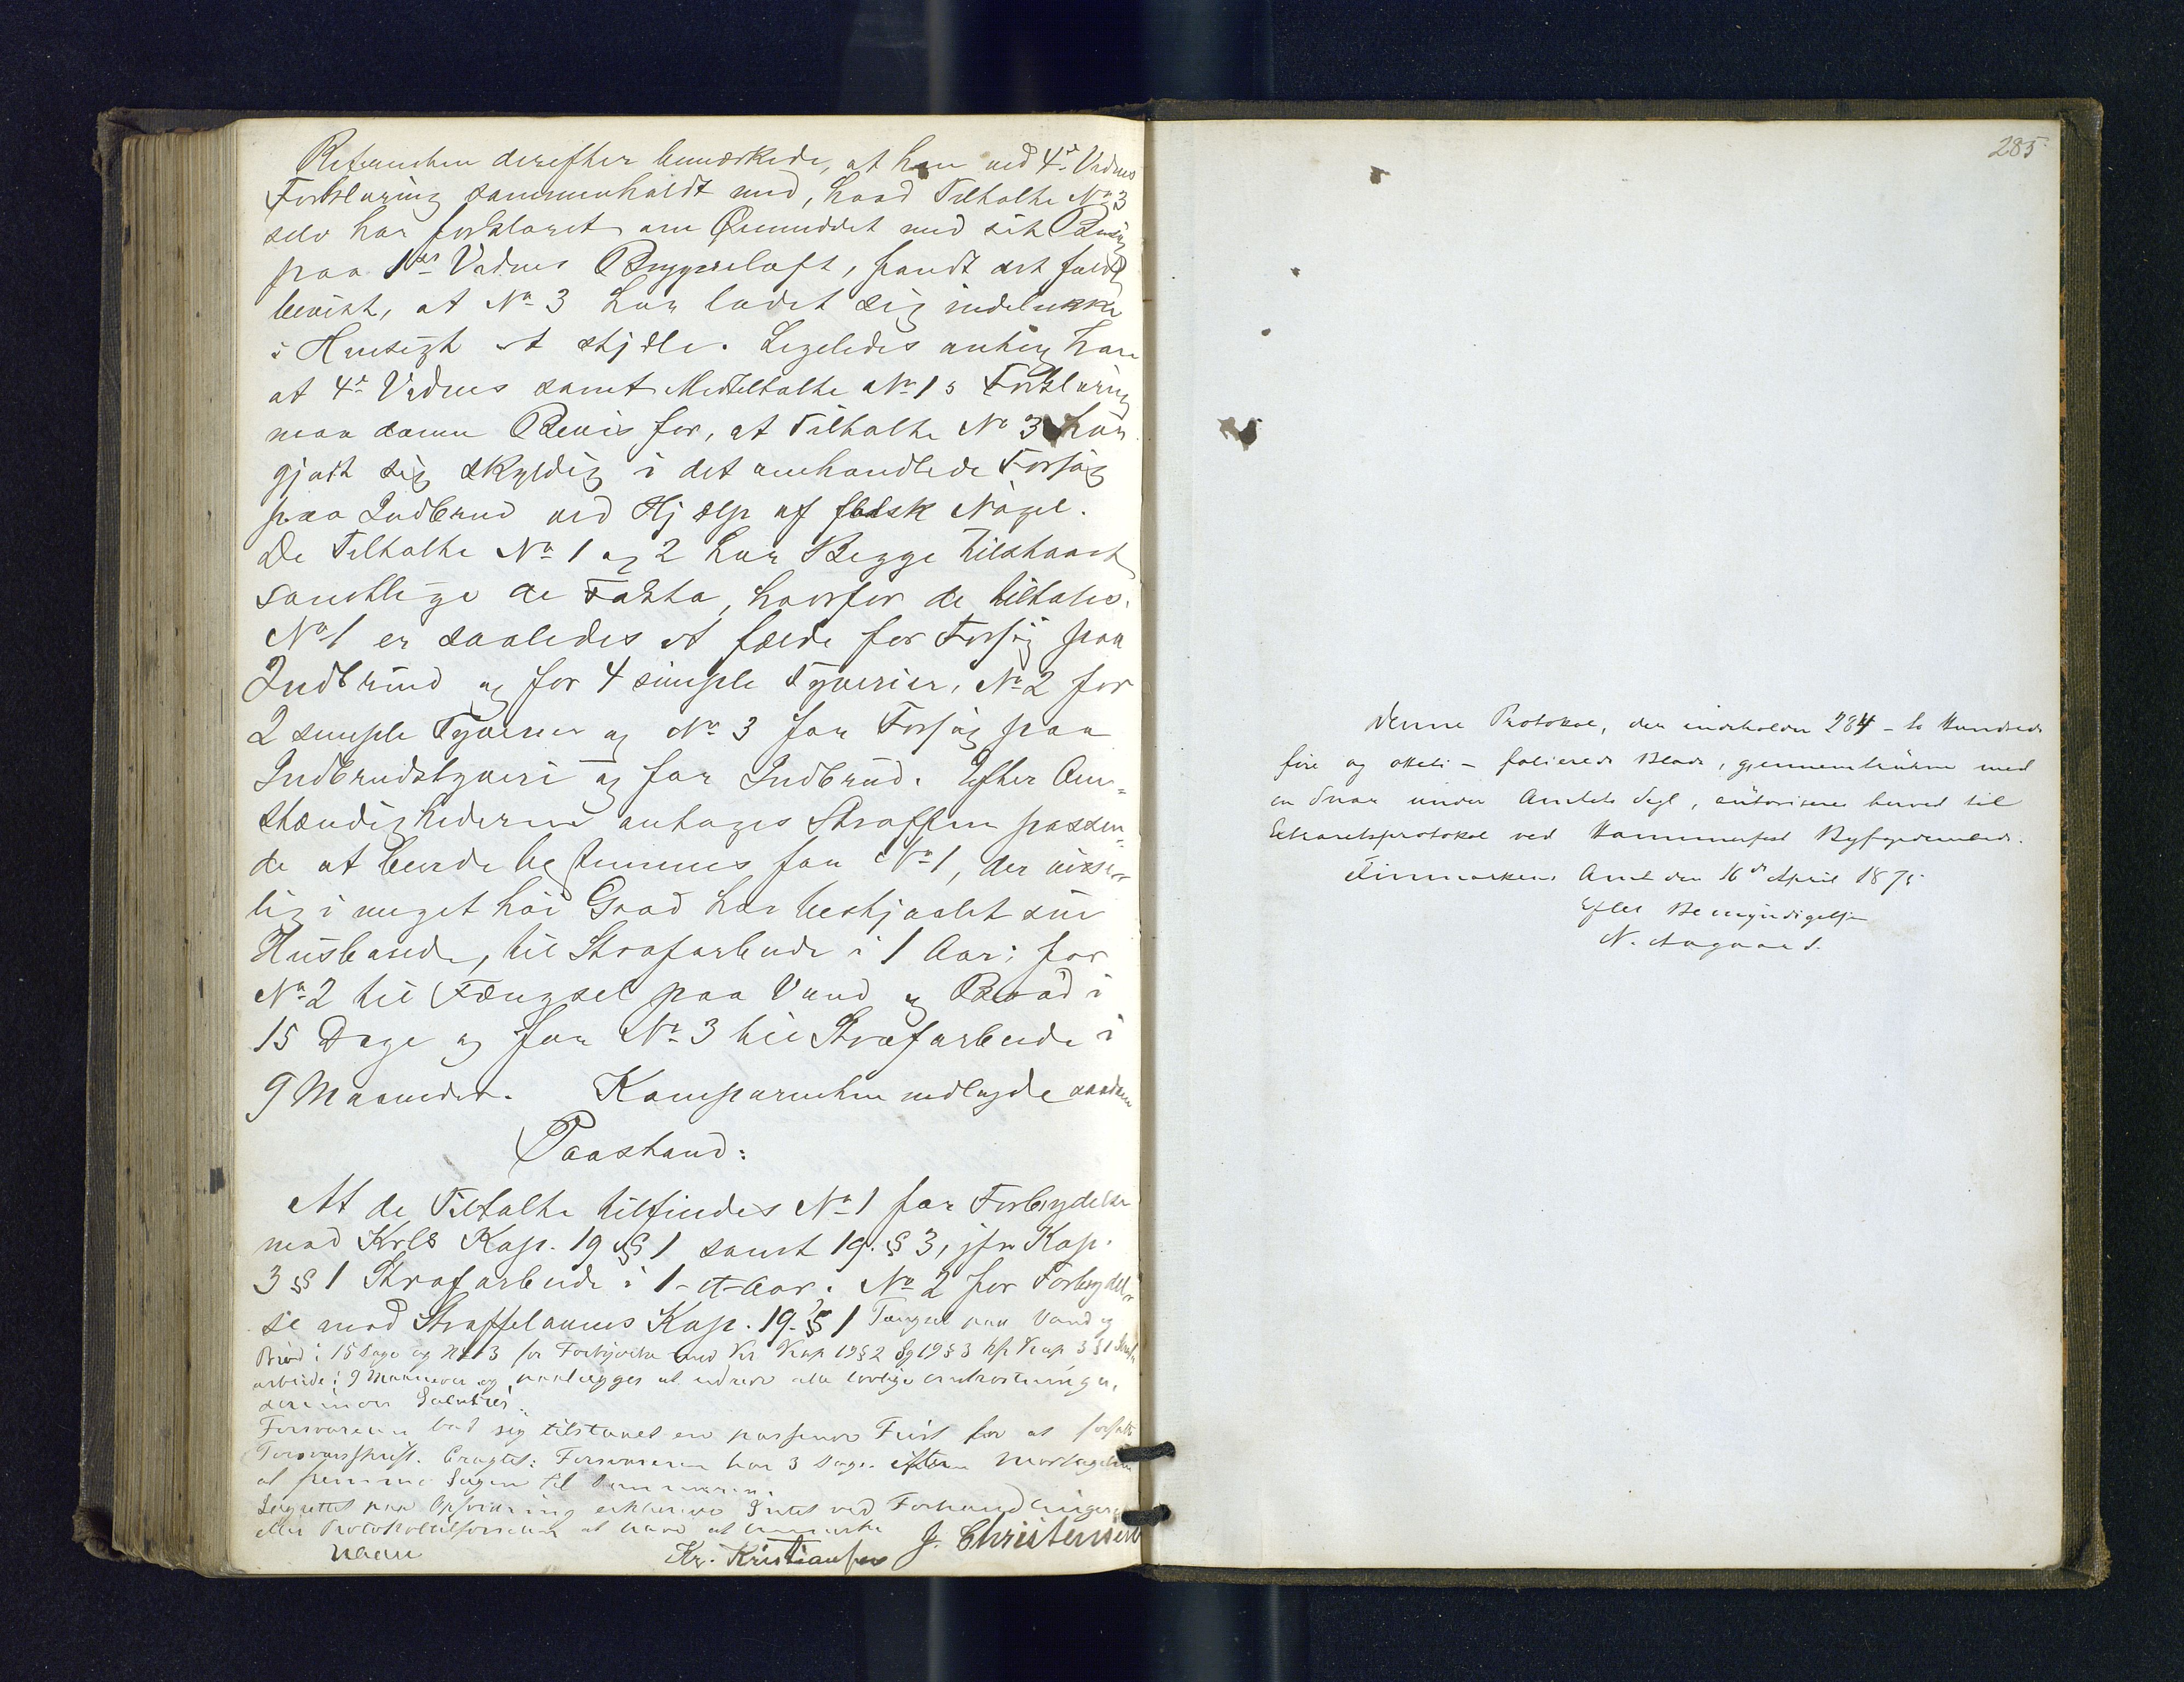 derefter bemærkede, at han ved 4de Vidnes
Forklaring sammenholdt med, hvad Tiltalte No 3
selv har forklaret om Øiemedet med sit Besøg
paa 1ste Vidnes Bryggeloft, fandt det fuldt
bevist, at No 3 har ladet sig indelukke
i Hensigt at stjæle. Ligeledes antog han
at 4de Vidnes samt Medtiltalte No 1s Forklaring
maa danne Bevis for, at Tiltalte No 3 har
gjort sig skyldig i det omhandlede Forsøg
paa Indbrud ved Hjælp af falsk Nøgel.
De Tiltalte No 1 og 2 har Begge tilstaaet
samtlige de Fakta, hvorfor de tiltales.
No 1 er saaledes at fælde for Forsøg paa
Indbrud og for 4 simple Tyverier, No 2 for
2 simple Tyverier og No 3 for Forsøg paa
Indbrudstyveri og for Indbrud. Efter Om-
stændighederne antages Straffen passen-
de at burde bestemmes for No 1, der
i meget høi Grad har bestjaalet sin
Husbonde, til Strafarbeide i 1 Aar; for
No 2 til Fængsel paa Vand og Brød i
15 Dage og for No 3 til Strafarbeide i
9 Maaneder. Komparenten nedlagde saadan
Paastand:
At de Tiltalte tilfindes No 1 for Forbrydelse
mod Krls Kap. 19 § 1 samt 19. § 3, jfr Kap.
3 § 1 Strafarbeide i 1 - et - Aar. No 2 for Forbrydel-
se mod Straffelovens Kap. 19. § 1 Fængsel paa Vand og
Brød i 15 Dage og No 3 for Forbrydelse mod Kr Kap 19 § 2 og 19 § 3 kfr Kap 3 § 1 Straf-
arbeide i 9 Maaneder og paalægges at udrede alle lovlige Omkostninger,
derunder Salærier.
Forsvareren bad sig tilstaaet en passende Frist for at forfatte
Forsvarsskrift. Eragtet: Forsvareren har 3 Dage efter Modtagelsen
at fremme Sagen til
Lagrettet paa Opfordring erklærede Intet ved Forhandlingerne
eller Protokoltilførselen at have at bemærke
Kr. Kristiansen J. Christensen
285
Denne Protokol, der indeholder 284 - to Hundrede
fire og otteti - folierede Blade, gjennemtrukne med
en Snor under Amtets Segl, autoriseres herved til
Extraretsprotokol ved Hammerfest Byfogedembede.
Finmarkens Amt den 16de April 1875
Efter Bemyndigelse
N. Aagaard.